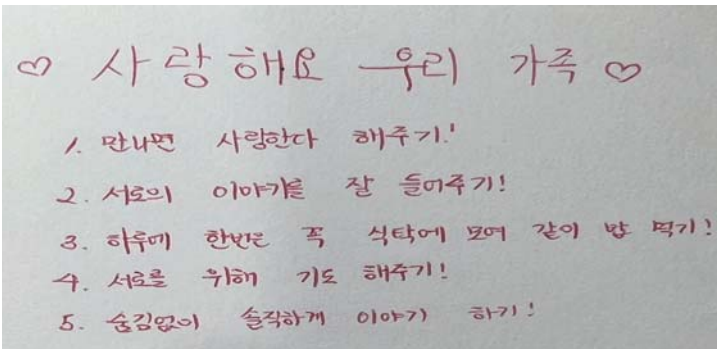 ♡ 사랑해요 우리 가족 ♡
1. 만나면 사랑한다 해주기!
2. 서로의 이야기를 잘 들어주기!
3. 하루에 한번은 꼭 식탁에 모여 같이 밥 먹기!
4. 서로를 위해 기도 해주기!
5. 숨김없이 솔직하게 이야기 하기!